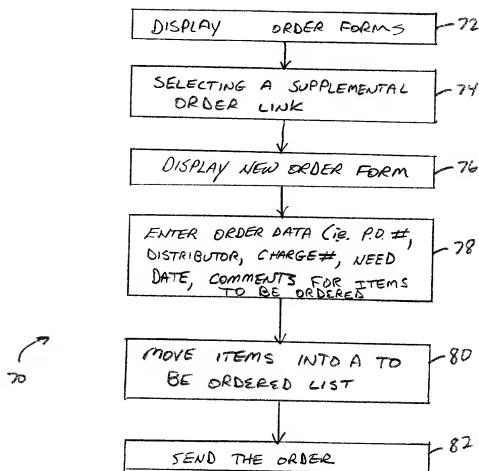 DISPLAY ORDER FORMS
72
SELECTING A SUPPLEMENTAL
ORDER LINK
74
DISPLAY NEW ORDER FORM
76
ENTER ORDER DATA (ie. P.O. #,
DISTRIBUTOR, CHARGE#, NEED
DATE, COMMENTS FOR ITEMS
TO BE ORDERED
78
70
MOVE ITEMS INTO A TO
BE ORDERED LIST
80
SEND THE ORDER
82